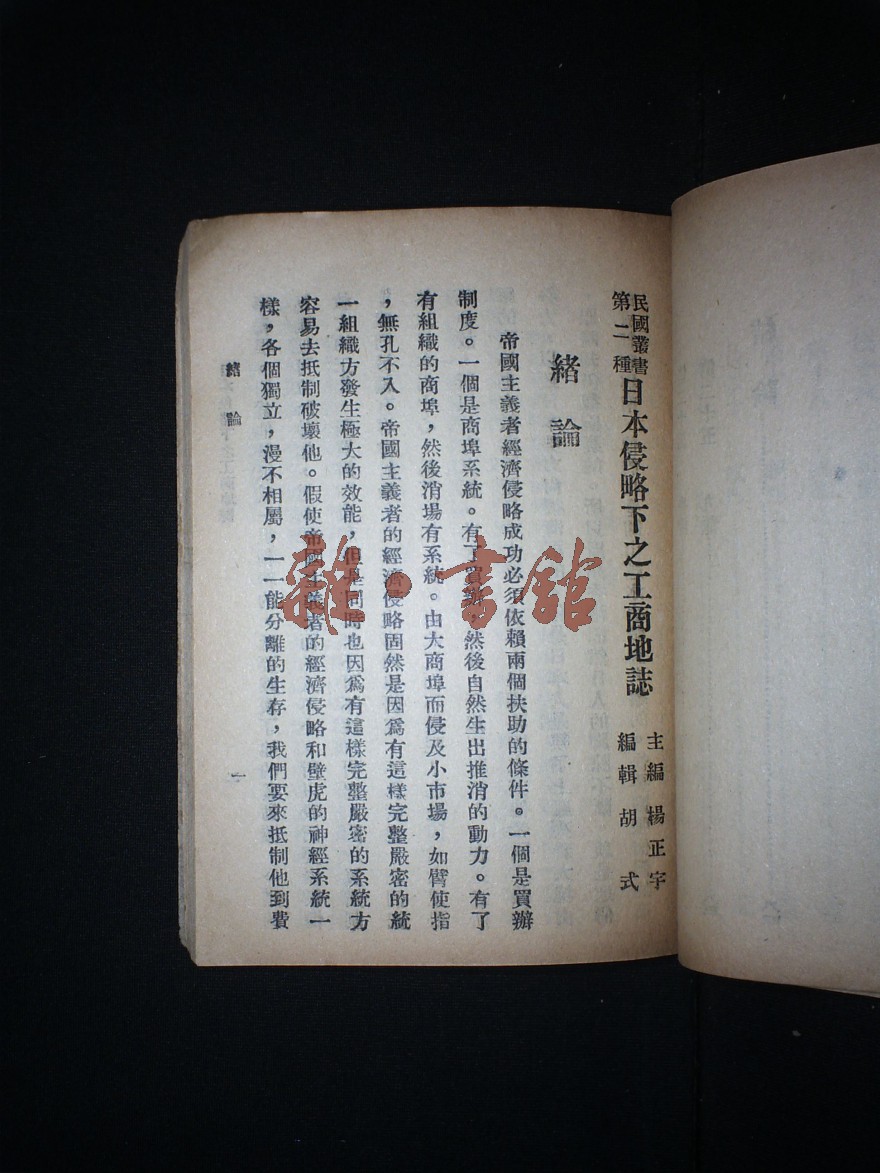 民國叢書
第二種
日本侵略下之工商地誌
主編 楊正宇
編輯 胡式
緒論
帝國主義者經濟侵略成功必須依賴兩個扶助的條件。一個是買辦
制度。一個是商埠系統。有了買辦,然後自然生出推消的動力。有了
有組織的商埠,然後消場有系統。由大商埠而侵及小市場,如臂使指
,無孔不入。帝國主義者的經濟侵略固然是因爲有這樣完整嚴密的統
一組織方發生極大的效能,但是同時也因爲有這樣完整嚴密的系統方
容易去抵制破壞他。假使帝國主義者的經濟侵略和壁虎的神經系統一
樣,各個獨立,漫不相屬,一一能分離的生存,我們要來抵制他到費
緒論
一
雜·書館